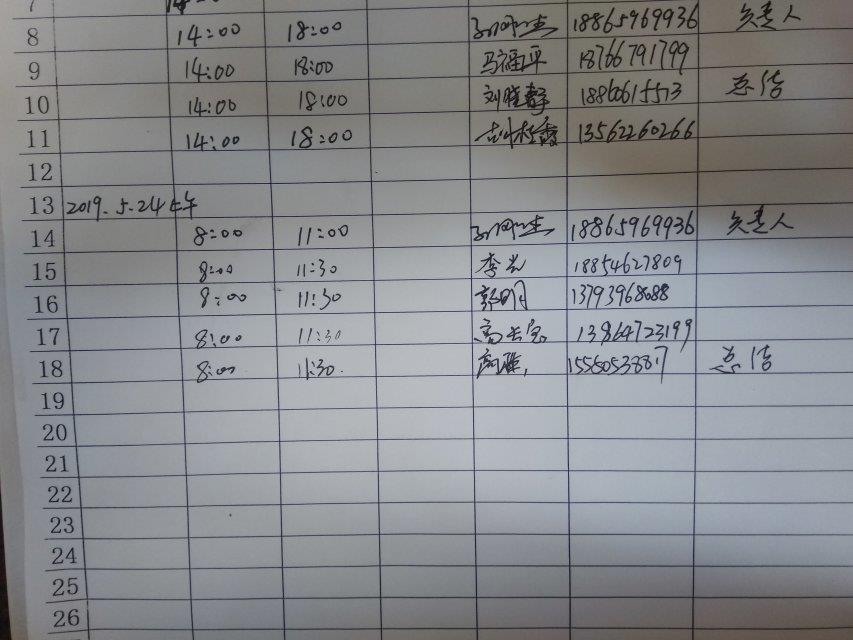 7 14:00
8 14:00 18:00 18865969936 负责人
9 14:00 18:00 马福平 18766791799
10 14:00 18:00 刘晓静 18860615513 总结
11 14:00 18:00 13562260266
12
13 2019.5.24上午
14 8:00 11:00 18865969936 负责人
15 8:00 11:30 李 18854627809
16 8:00 11:30 郭明 13793968088
17 8:00 11:30 高长宝 13864723199
18 8:00 11:30. 高雅 总结
19
20
21
22
23
24
25
26